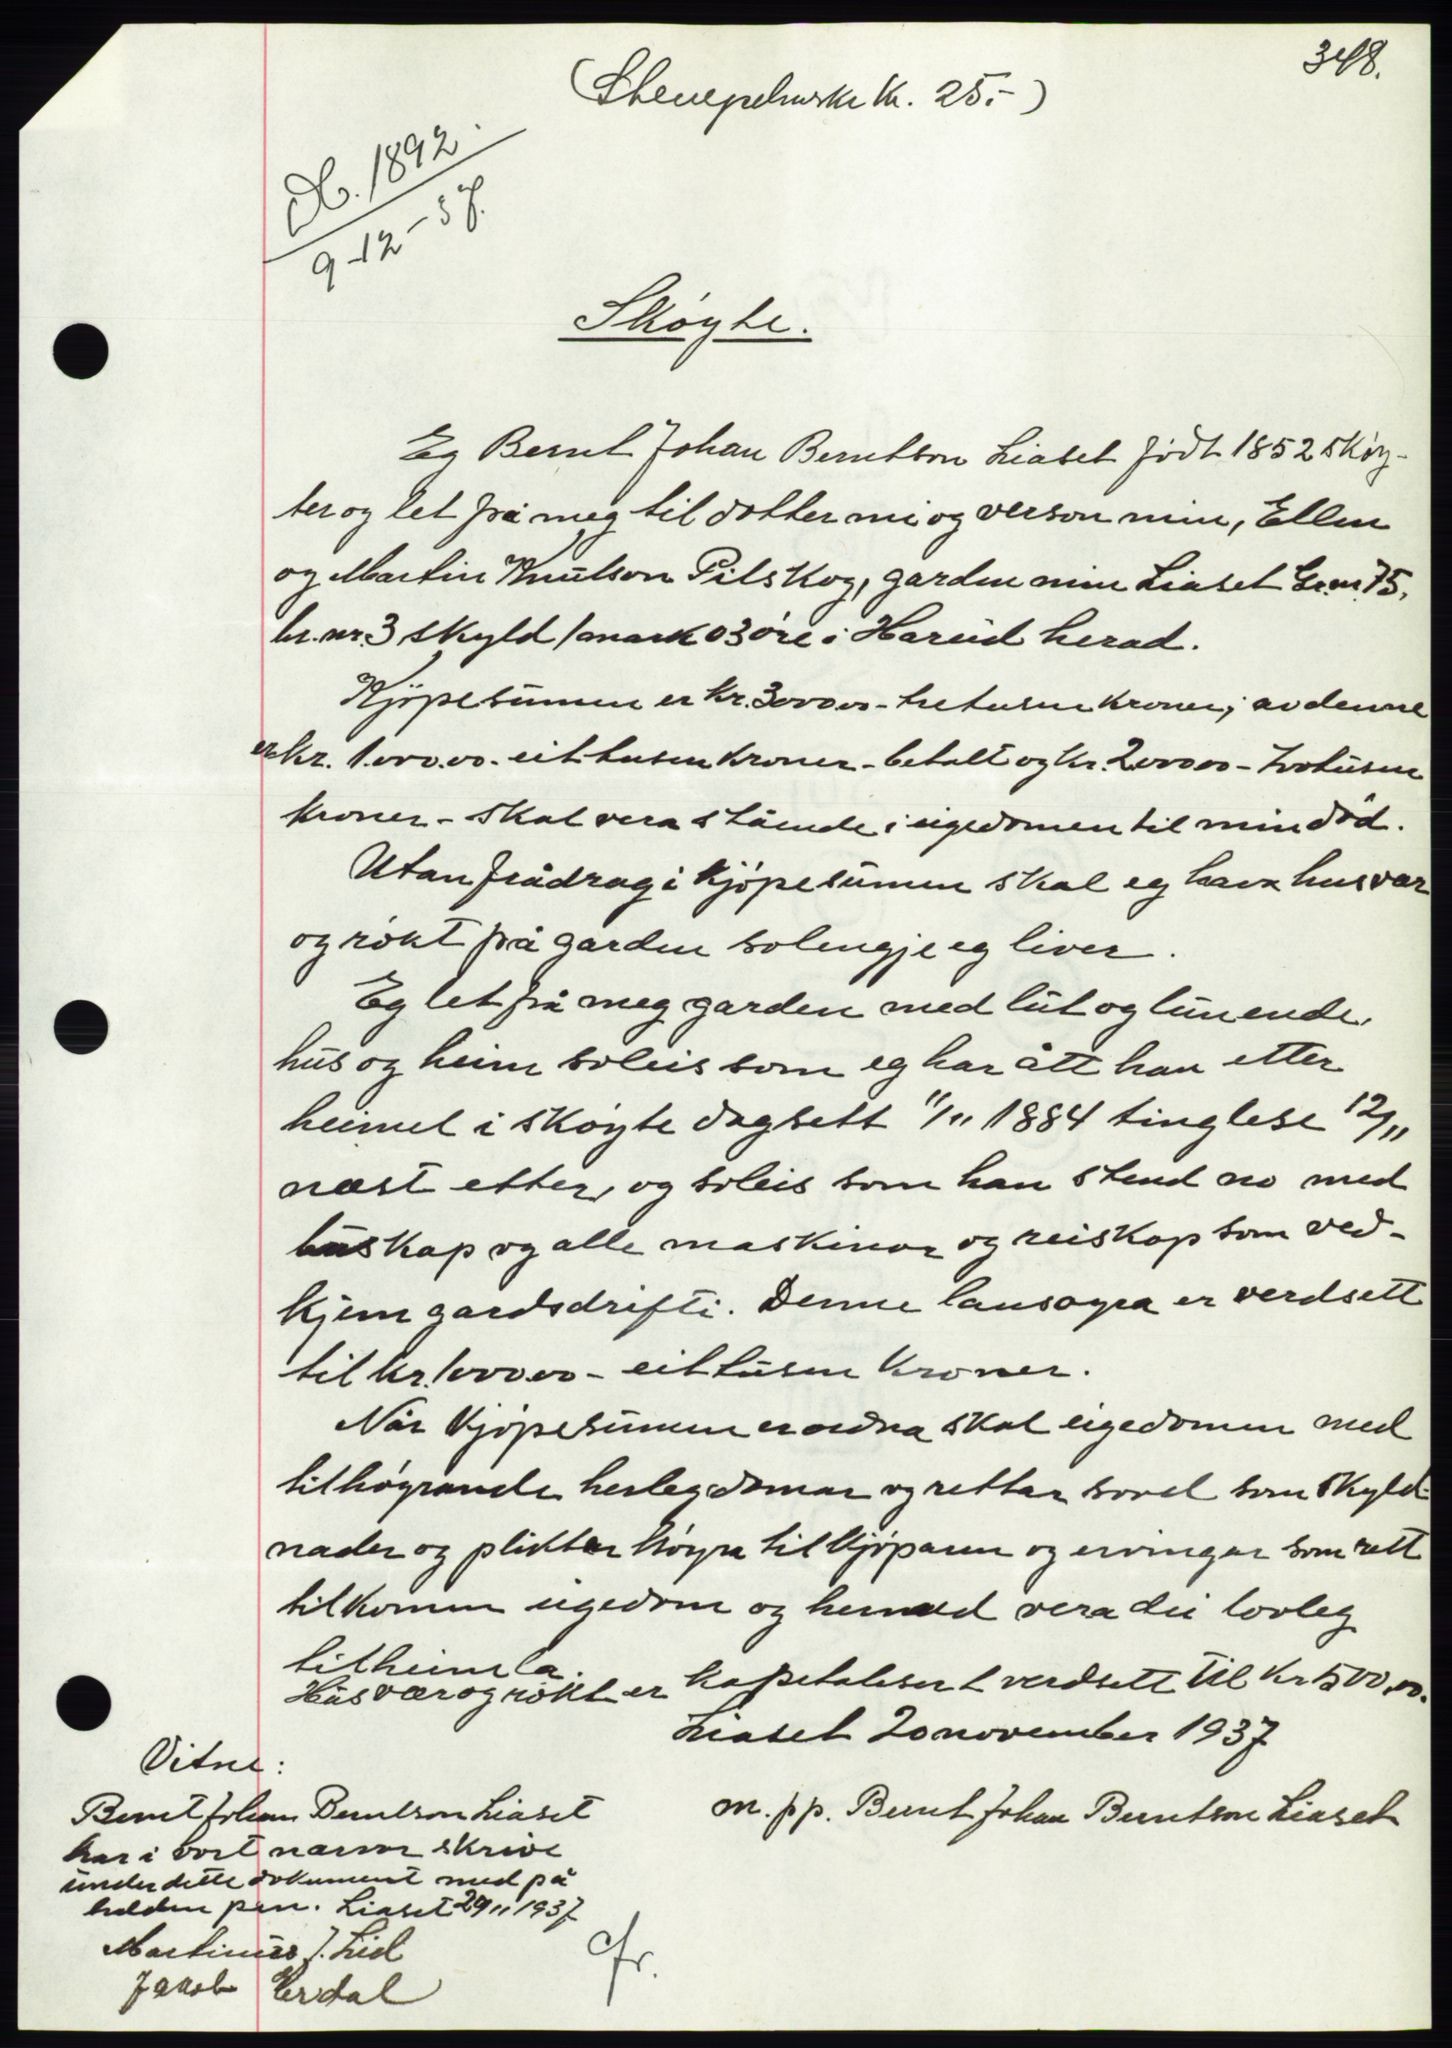 348.
(Stempelmerke kr. 25.-)
Db. 1892.
9-12-37.
Skøyte.
Eg Bernt Johan Berntson Liaset født 1852 skøy-
ter og let frå meg til dotter mi og verson min, Ellen
og Martin Knutson Pilskog, garden min Liaset Gr.nr. 75,
br.nr. 3 skyld 1 mark 03 øre i Hareid herad.
Kjøpesumen er kr. 3000.00 - tretusen kroner; av denne
er kr. 1.000.00 - eit tusen kroner - betalt og kr. 2000.00 - totusen
kroner - skal vera stående i eigedomen til min død.
Utan frådrag i kjøpesumen skal eg hava husvær
og røkt på garden solengje eg liver.
Eg let frå meg garden med lut og lunende,
hus og heim soleis som eg har ått han etter
heimel i skøyte dagsett 11/11 1884 tinglese 12/11
næst etter, og soleis som han stend no med
buskap og alle maskinor og reiskap som ved-
kjem gardsdrifti. Denne lausøyra er verdsett
til kr. 1000.00 - eit tusen kroner.
Når kjøpesumen er ordna skal eigedomen med
tilhøyrande herlegdomar og rettar sovel som skyld-
nader og plikter høyra til kjøparen og ervingar som rett
tilkomen eigedom og hermed vera dei lovleg
tilheimla.
Husvær og røkt er kapetalisert verdsett til kr 500.00.
Liaset 20 november 1937
m. p p. Bernt Johan Berntson Liaset
Vitne:
Bernt Johan Berntson Liaset
har i vort nærvær skrive
under dette dokument med på
helden pen. Liaset 20/11 1937
Martinus J. Lid
Jakob Erdal